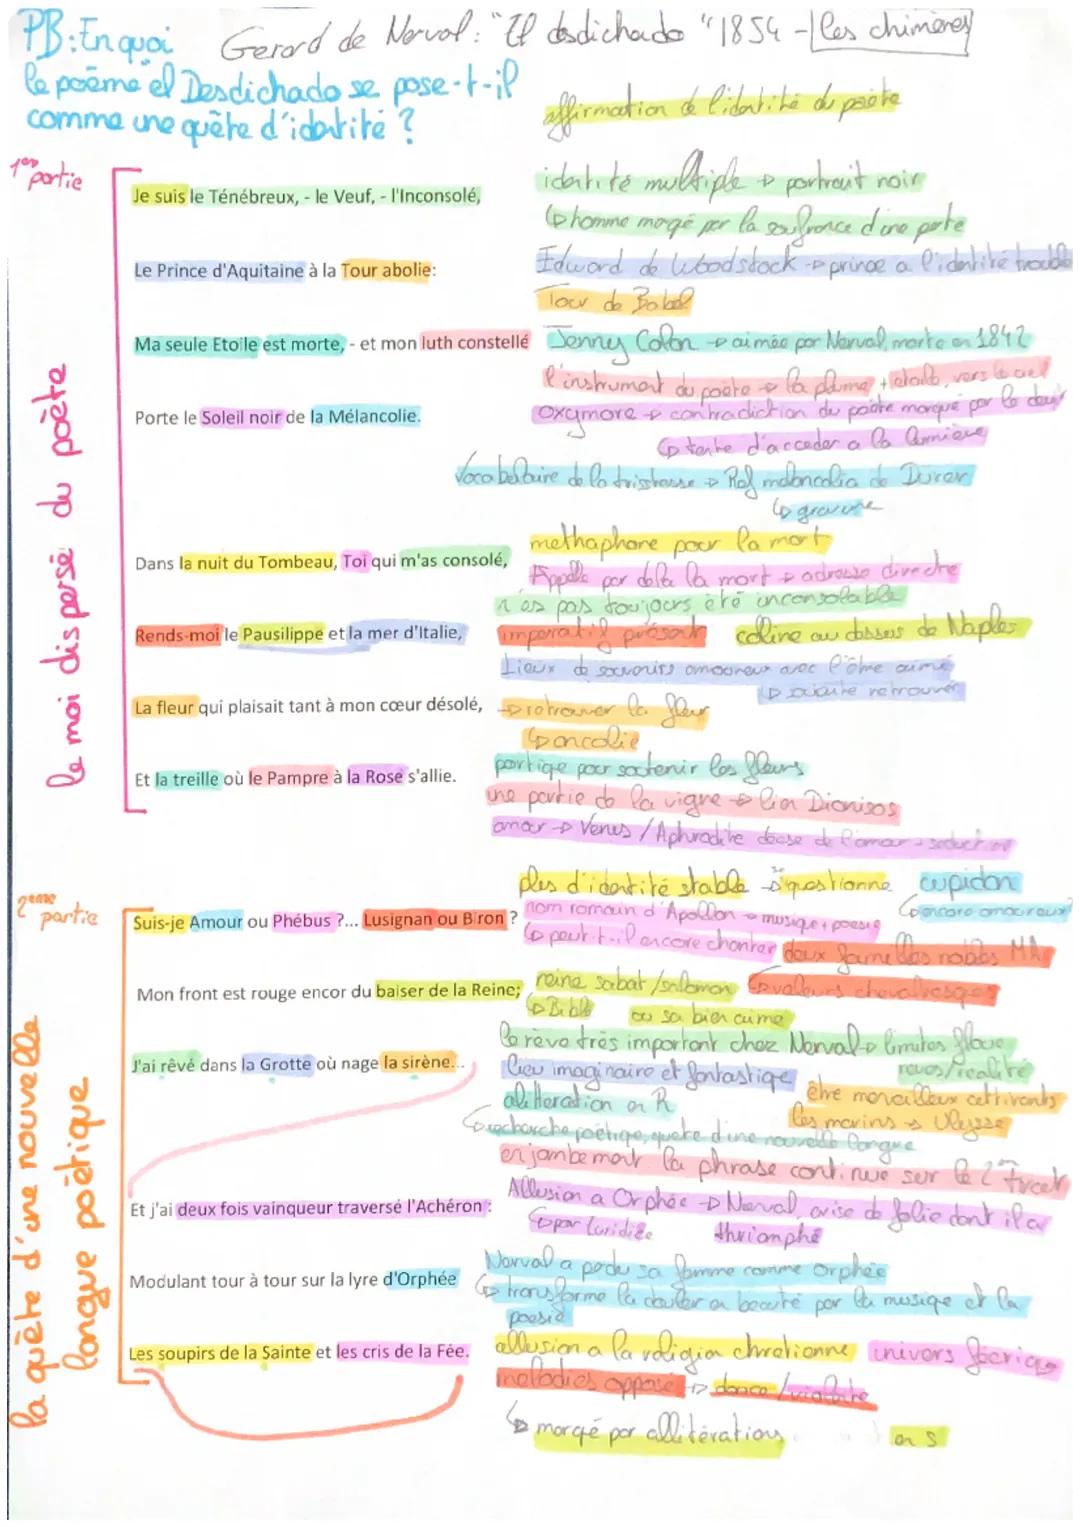 PB: En quoi
le poème el Desdichado se pose-t-il
comme une quête d'identité ?
Gerard de Nerval: "El desdichado" 1854 - les chimères
affirmation de l'identité du poète
1ere partie
le moi dispersé du poète
Je suis le Ténébreux, - le Veuf, - l'Inconsolé,
identité multiple → portrait noir
↳ homme marqé par la soufrance d'une perte
Le Prince d'Aquitaine à la Tour abolie:
Edward de Woodstock → prince a l'identité trouble
Tour de Babel
Ma seule Etoile est morte, - et mon luth constellé
Jenny Colon → aimée par Nerval, morte en 1842
l'instrument du poète → la plume, + étoile, vers le ciel
Porte le Soleil noir de la Mélancolie.
oxymore → contradiction du poète marqué par le deuil
↳ tente d'acceder a la lumière
Vocabulaire de la tristesse → Ref melancolia de Dürer
↳ gravure
Dans la nuit du Tombeau, Toi qui m'as consolé,
methaphore pour la mort
Appelle par dela la mort → adresse directe
n'as pas toujours été inconsolable
Rends-moi le Pausilippe et la mer d'Italie,
imperatif présent
coline au dessus de Naples
Lieux de souvenirs amoureux avec l'être aimé
↳ retrouver
La fleur qui plaisait tant à mon cœur désolé,
→ retrouver la fleur
↳ ancolie
Et la treille où le Pampre à la Rose s'allie.
portique pour soutenir les fleurs
une partie de la vigne → lien Dionisos
amour → Venus / Aphrodite déese de l'amour = seduction
2eme partie
la quête d'une nouvelle
langue poètique
plus d'identité stable → se questionne
cupidon
↳ encore amoureux?
Suis-je Amour ou Phébus ?... Lusignan ou Biron ?
nom romain d'Apollon → musique + poesie
↳ peut-t-il encore chanter
deux familles nobles MA
↳ valeurs chevaleresques
Mon front est rouge encor du baiser de la Reine;
reine sabat / salomon
↳ Bible
ou sa bien aimé
J'ai rêvé dans la Grotte où nage la sirène...
le rève très important chez Nerval → limites floue
reves/réalité
lieu imaginaire et fantastique
être merveilleux
les marins → Ulysse
aliteration en R
↳ recherche poétiqe, quete d'une nouvelle langue
enjambement la phrase continue sur le 2eme Tercet
Et j'ai deux fois vainqueur traversé l'Achéron :
Allusion a Orphée → Nerval, crise de folie dont il a
thriomphé
Modulant tour à tour sur la lyre d'Orphée
Nerval a perdu sa femme comme Orphée
↳ transforme la douleur en beauté par la musique et la
poesie
Les soupirs de la Sainte et les cris de la Fée.
allusion a la religion chretienne
univers féerique
melodies opposé → douce / violente
↳ marqé par allitérations
en S